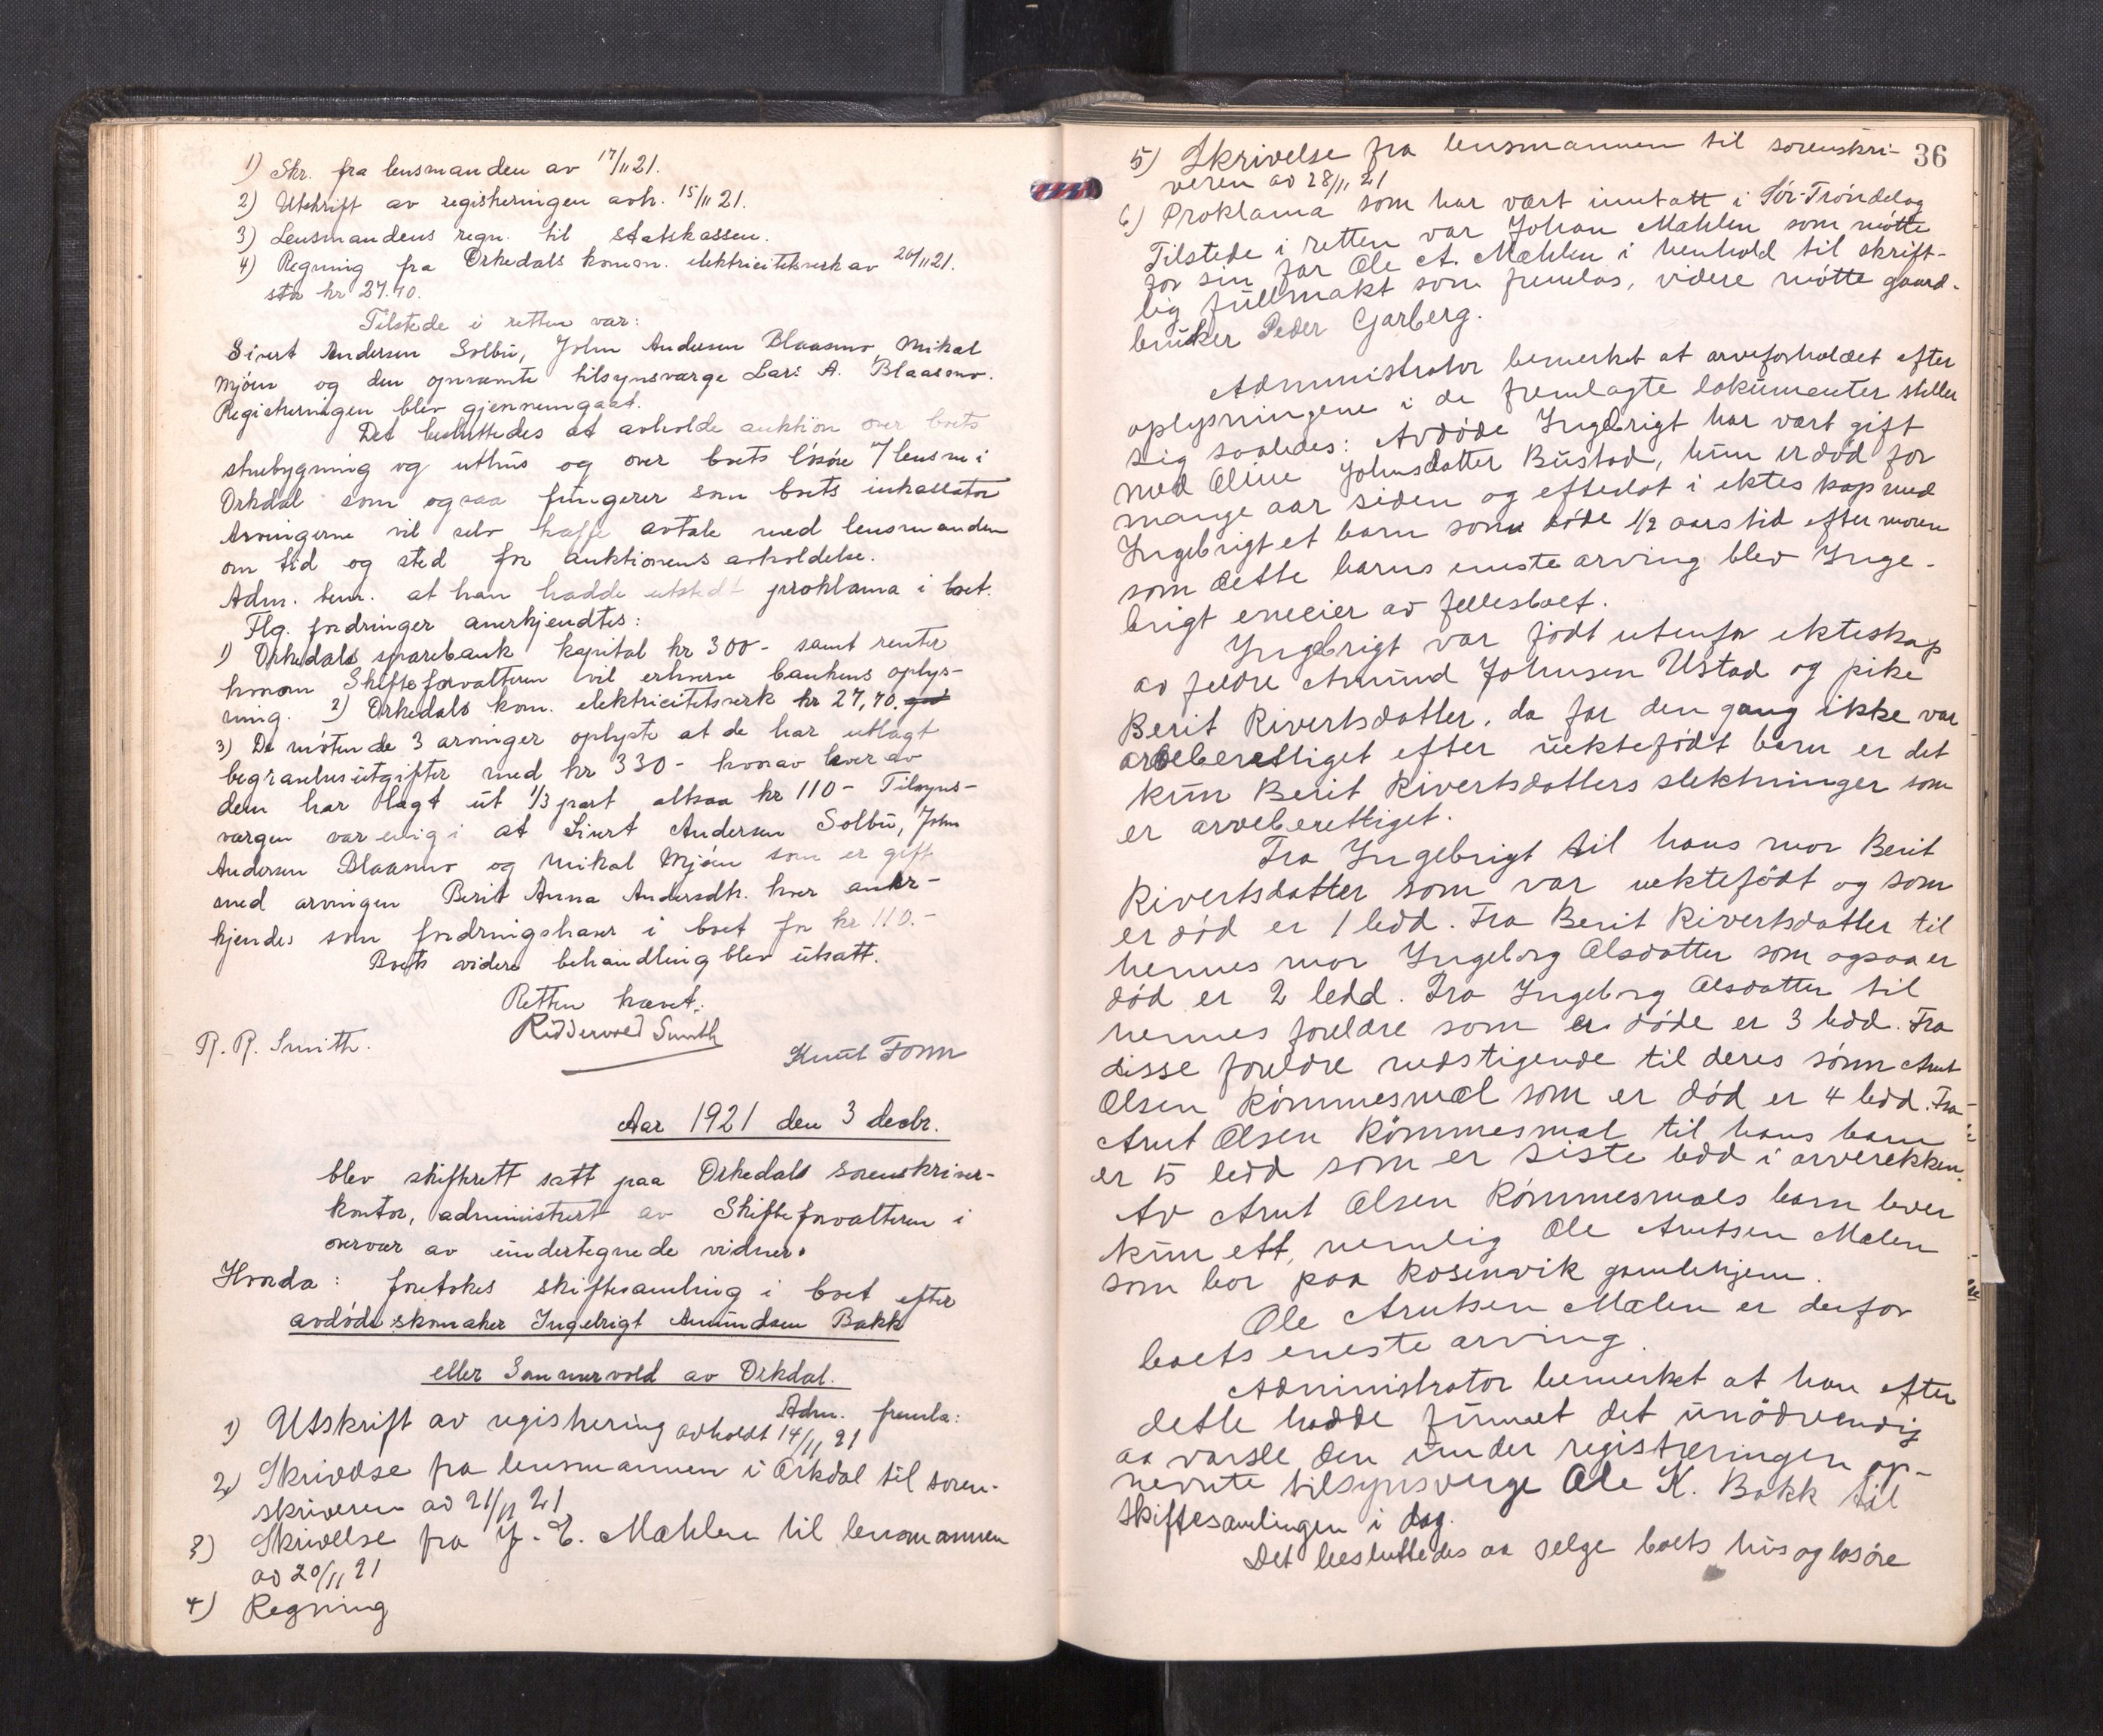 1) Skr. fra lensmanden av 17/11 21.
2) Utskrift av registreringen avh. 15/11 21.
3) Lensmandens regn. til statskassen.
4) Regning fra Orkedals komm. elektricitetsverk av 26/11 21.
stor kr 27.70.
Tilstede i retten var:
Sivert Andersen Solbu, John Andersen Blaasmo, Mikal
Mjøen og den opnævnte tilsynsværge Lars A. Blaasmo.
Registreringen blev gjennemgaat.
Det besluttedes at avholde auktion over boets
stuebygning og uthus og over boets løsøre v/ lensm. i
Orkdal som ogsaa fungerer som boets inkassator
Arvingerne vil selv træffe avtale med lensmanden
om tid og sted for auktionens avholdelse.
Adm. bem. at han hadde utstedt proklama i boet.
Flg. fordringer anerkjendtes:
1) Orkedals sparebank kapital kr 300- samt renter
hvorom Skifteforvalteren vil erhverve bankens oplys-
ning. 2) Orkedals kom. elektricitetsverk kr 27,70.
3) De møtende 3 arvinger oplyste at de har utlagt
begravelsesutgifter med kr 330- hvorav hver av
dem har lagt ut 1/3 part altsaa kr 110- Tilsyns-
værgen var enig i at Sivert Andersen Solbu, John
Andersen Blaasmo og Mikal Mjøen som er gift
med arvingen Berit Anna Andersdtr. hver aner-
kjendes som fordringshaver i boet for kr 110.-
Boets videre behandling blev utsatt.
Retten hævet.
Ridderwold Smith
R. R. Smith.
Knut Tomm
Aar 1921 den 3 decbr.
blev skifterett satt paa Orkedals sorenskriver-
kontor, administrert av Skifteforvalteren i
overvær av undertegnede vidner.
Hvorda: foretokes skiftesamling i boet efter
avdøde skomaker Ingebrigt Amundsen Bakk
eller Sommervold av Orkdal.
Adm. fremla:
1) Utskrift av registrering avholdt 14/11 21
2) Skrivelse fra lensmannen i Orkdal til soren-
skriveren av 21/11 21
3) Skrivelse fra J. E. Mæhlen til lensmannen
av 20/11 21
4) Regning
36
5) Skrivelse fra lensmannen til sorenskri-
veren av 28/11 21
6) Proklama som har vært inntatt i Sør-Trøndelag
Tilstede i retten var Johan Mæhlen som møtte
for sin far Ole A. Mæhlen i henhold til skrift-
lig fullmakt som fremlas, videre møtte gaard-
bruker Peder Garberg.
Administrator bemerket at arveforholdet efter
oplysningene i de fremlagte dokumenter stiller
sig saaledes: Avdøde Ingebrigt har vært gift
med Oline Johnsdatter Bustad, hun er død for
mange aar siden og efterlot i ekteskap med
Ingebrigt et barn som døde 1/2 aars tid efter moren
som dette barns eneste arving blev Inge-
brigt eneeier av fellesboet.
Ingebrigt var født utenfor ekteskap
av feldre Amund Johnsen Ustad og pike
Berit Sivertsdatter, da far den gang ikke var
arveberettiget efter uektefødt barn er det
kun Berit Sivertsdatters slektninger som
er arveberettiget.
Fra Ingebrigt til hans mor Berit
Sivertsdatter som var uektefødt og som
er død er 1 ledd. Fra Berit Sivertsdatter til
hennes mor Ingeborg Olsdatter som ogsaa er
død er 2 ledd. Fra Ingeborg Olsdatter til
hennes foreldre som er døde er 3 ledd. Fra
disse foreldre nedstigende til deres sønn Arnt
Olsen Rømmesmæl som er død er 4 ledd. Fra
Arnt Olsen Rømmesmæl til hans barn
er 5 ledd som er siste ledd i arverekken.
Av Arnt Olsen Rømmesmæls barn lever
kun ett, nemlig Ole Arntsen Mælen
som bor paa Rosenvik gamlehjem.
Ole Arntsen Mælen er derfor
boets eneste arving.
Administrator bemerket at han efter
dette hadde funnet det unødvendig
aa varsle den under registreringen op-
nevnte tilsynsverge Ole K. Bakk til
Skiftesamlingen i dag.
Det besluttedes aa selge boets hus og løsøre